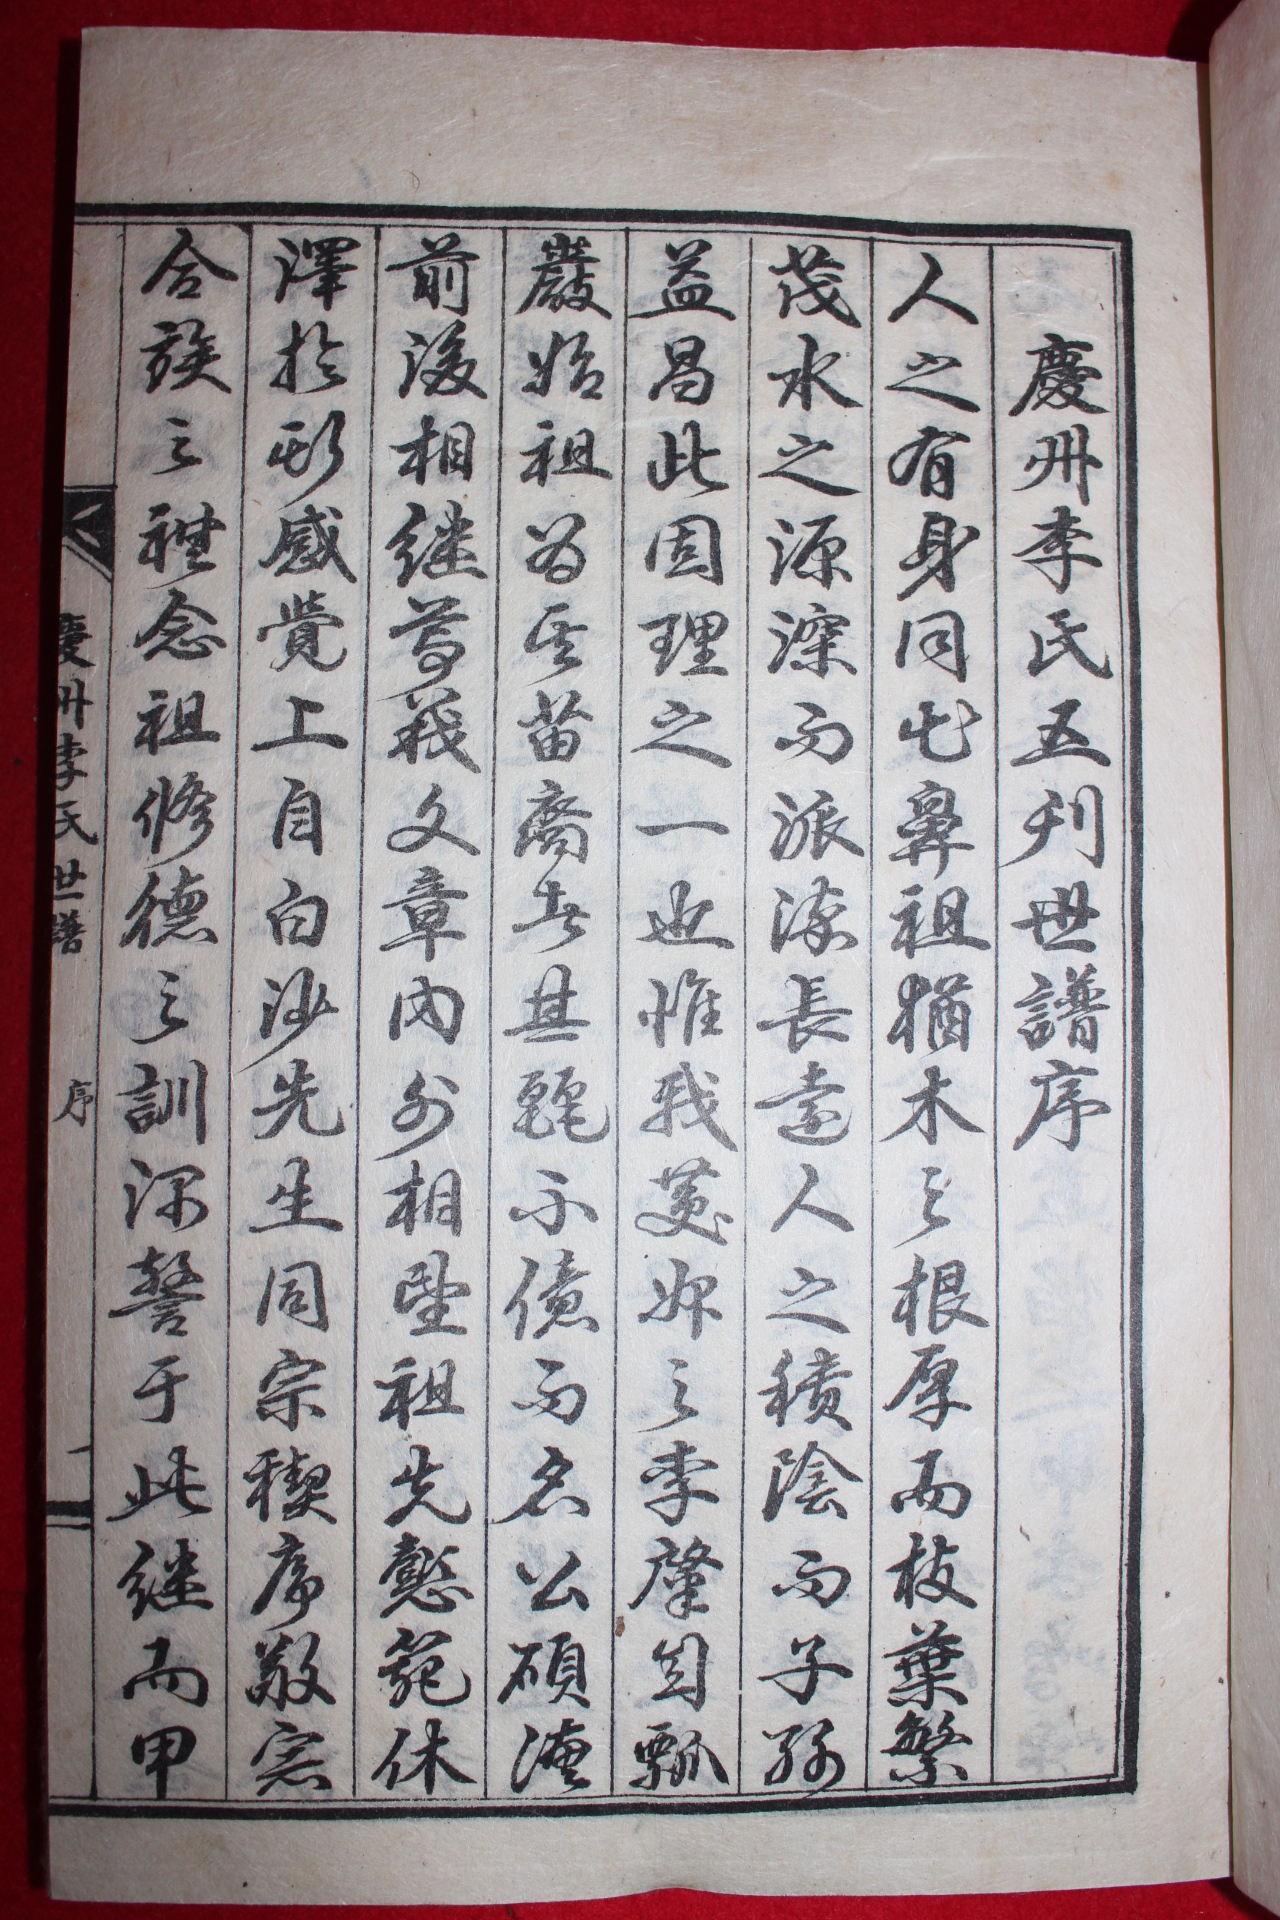 慶州李氏五刊世譜序
人之有身同此鼻祖猶木之根厚而枝葉繁
茂水之源深而派流長遠人之積陰而子孫
益昌此固理之一也惟我慶州之李肇自瓢
巖始祖爲其苗裔者其麗不億而名公碩德
前後相繼節義文章內外相望祖先懿範休
澤於斯感覺上自白沙先生同宗稧序敬宗
合族之禮念祖修德之訓深警于此繼而甲
慶州李氏世譜 序 一